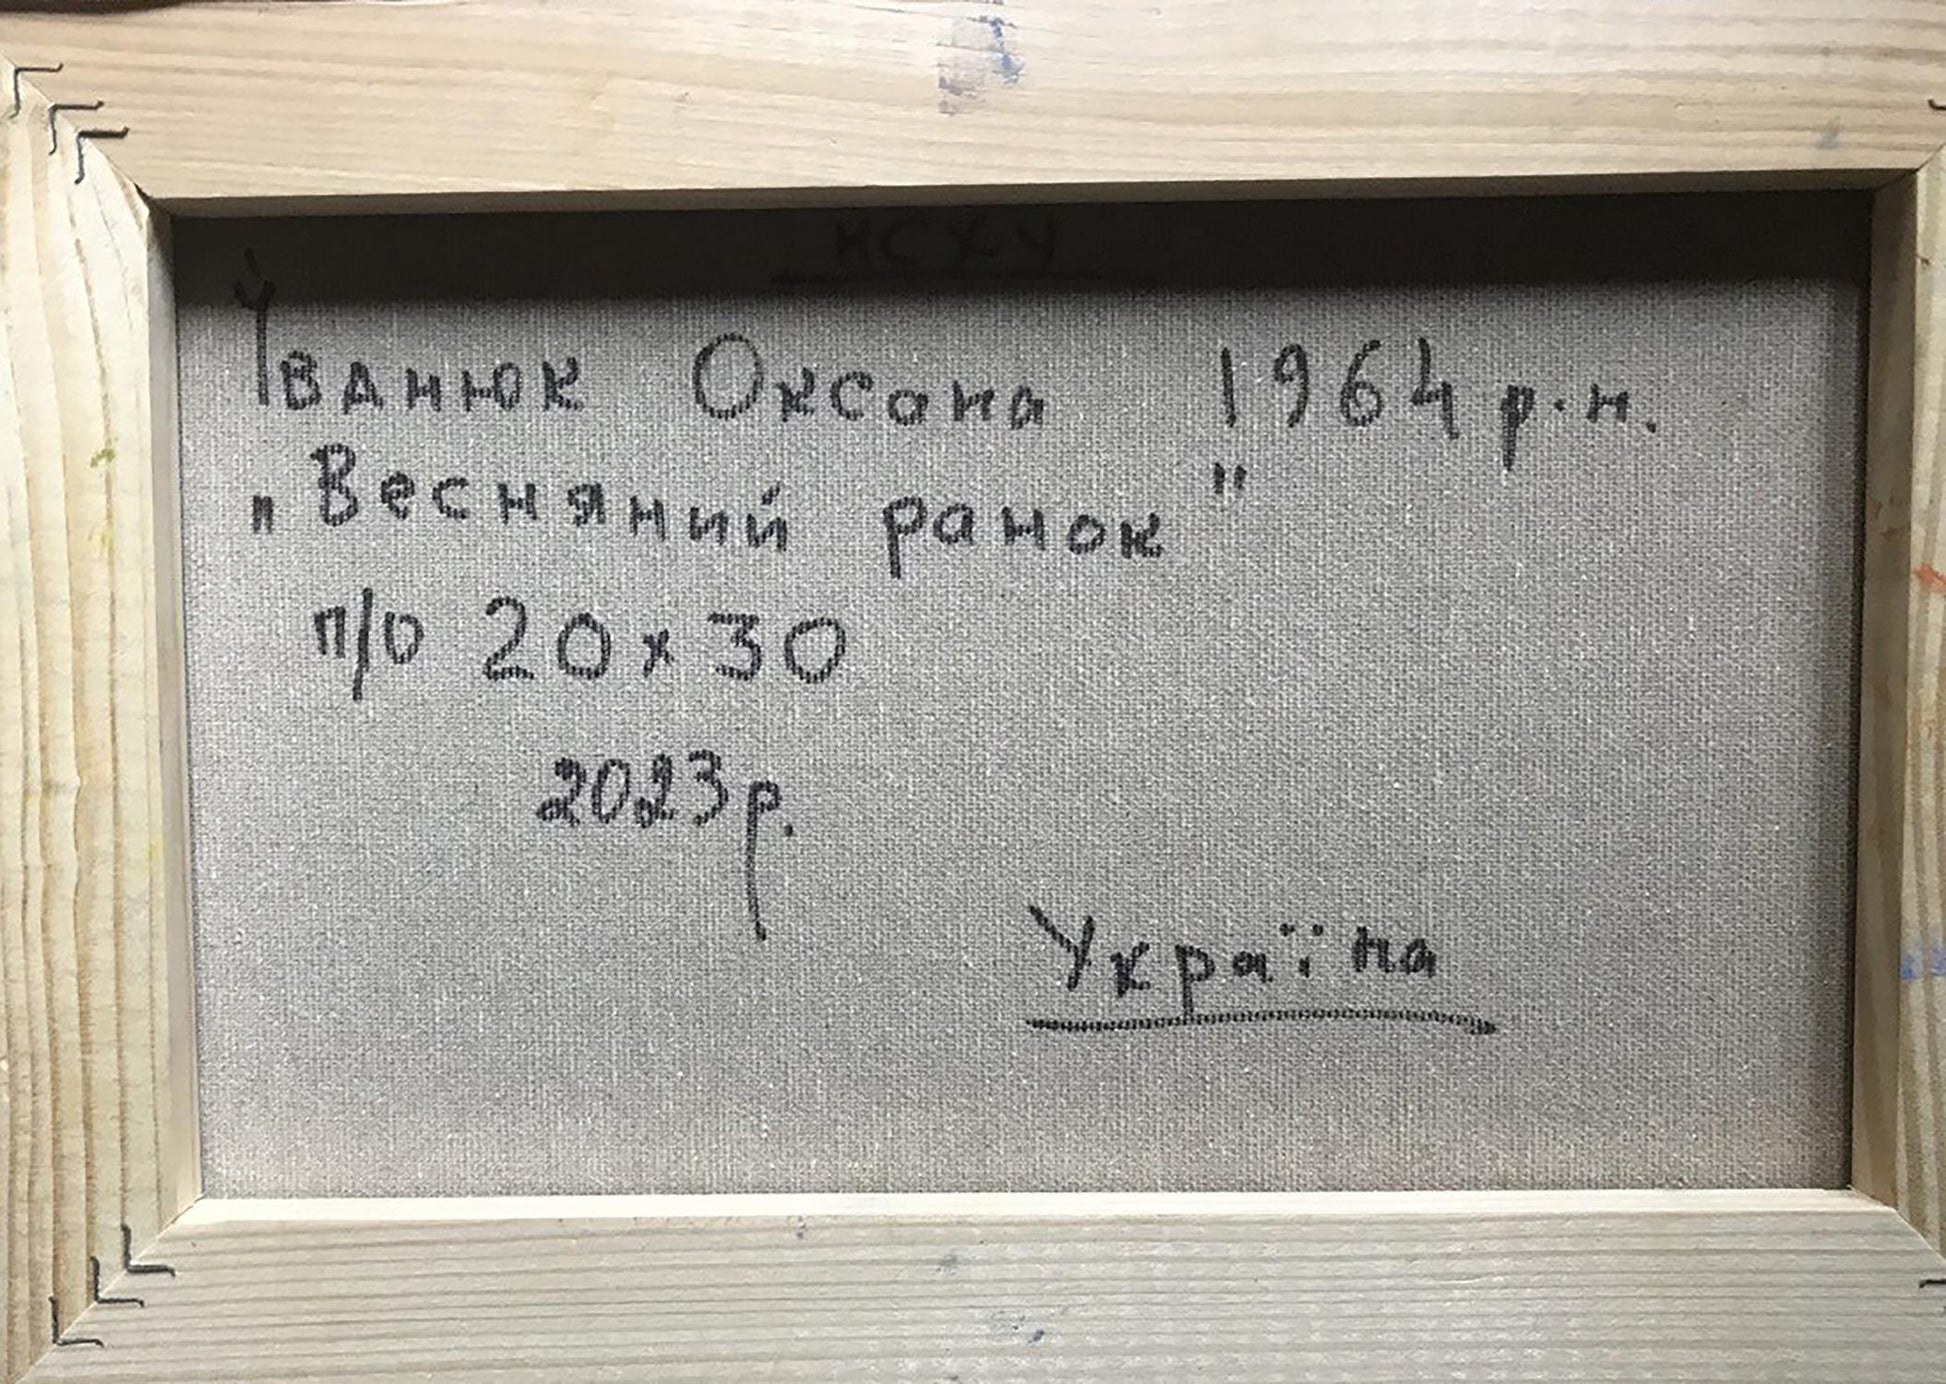 НСХУ
Іванюк Оксана 1964 р.н.
„Весняний ранок"
п/о 20х30
2023р.
Україна